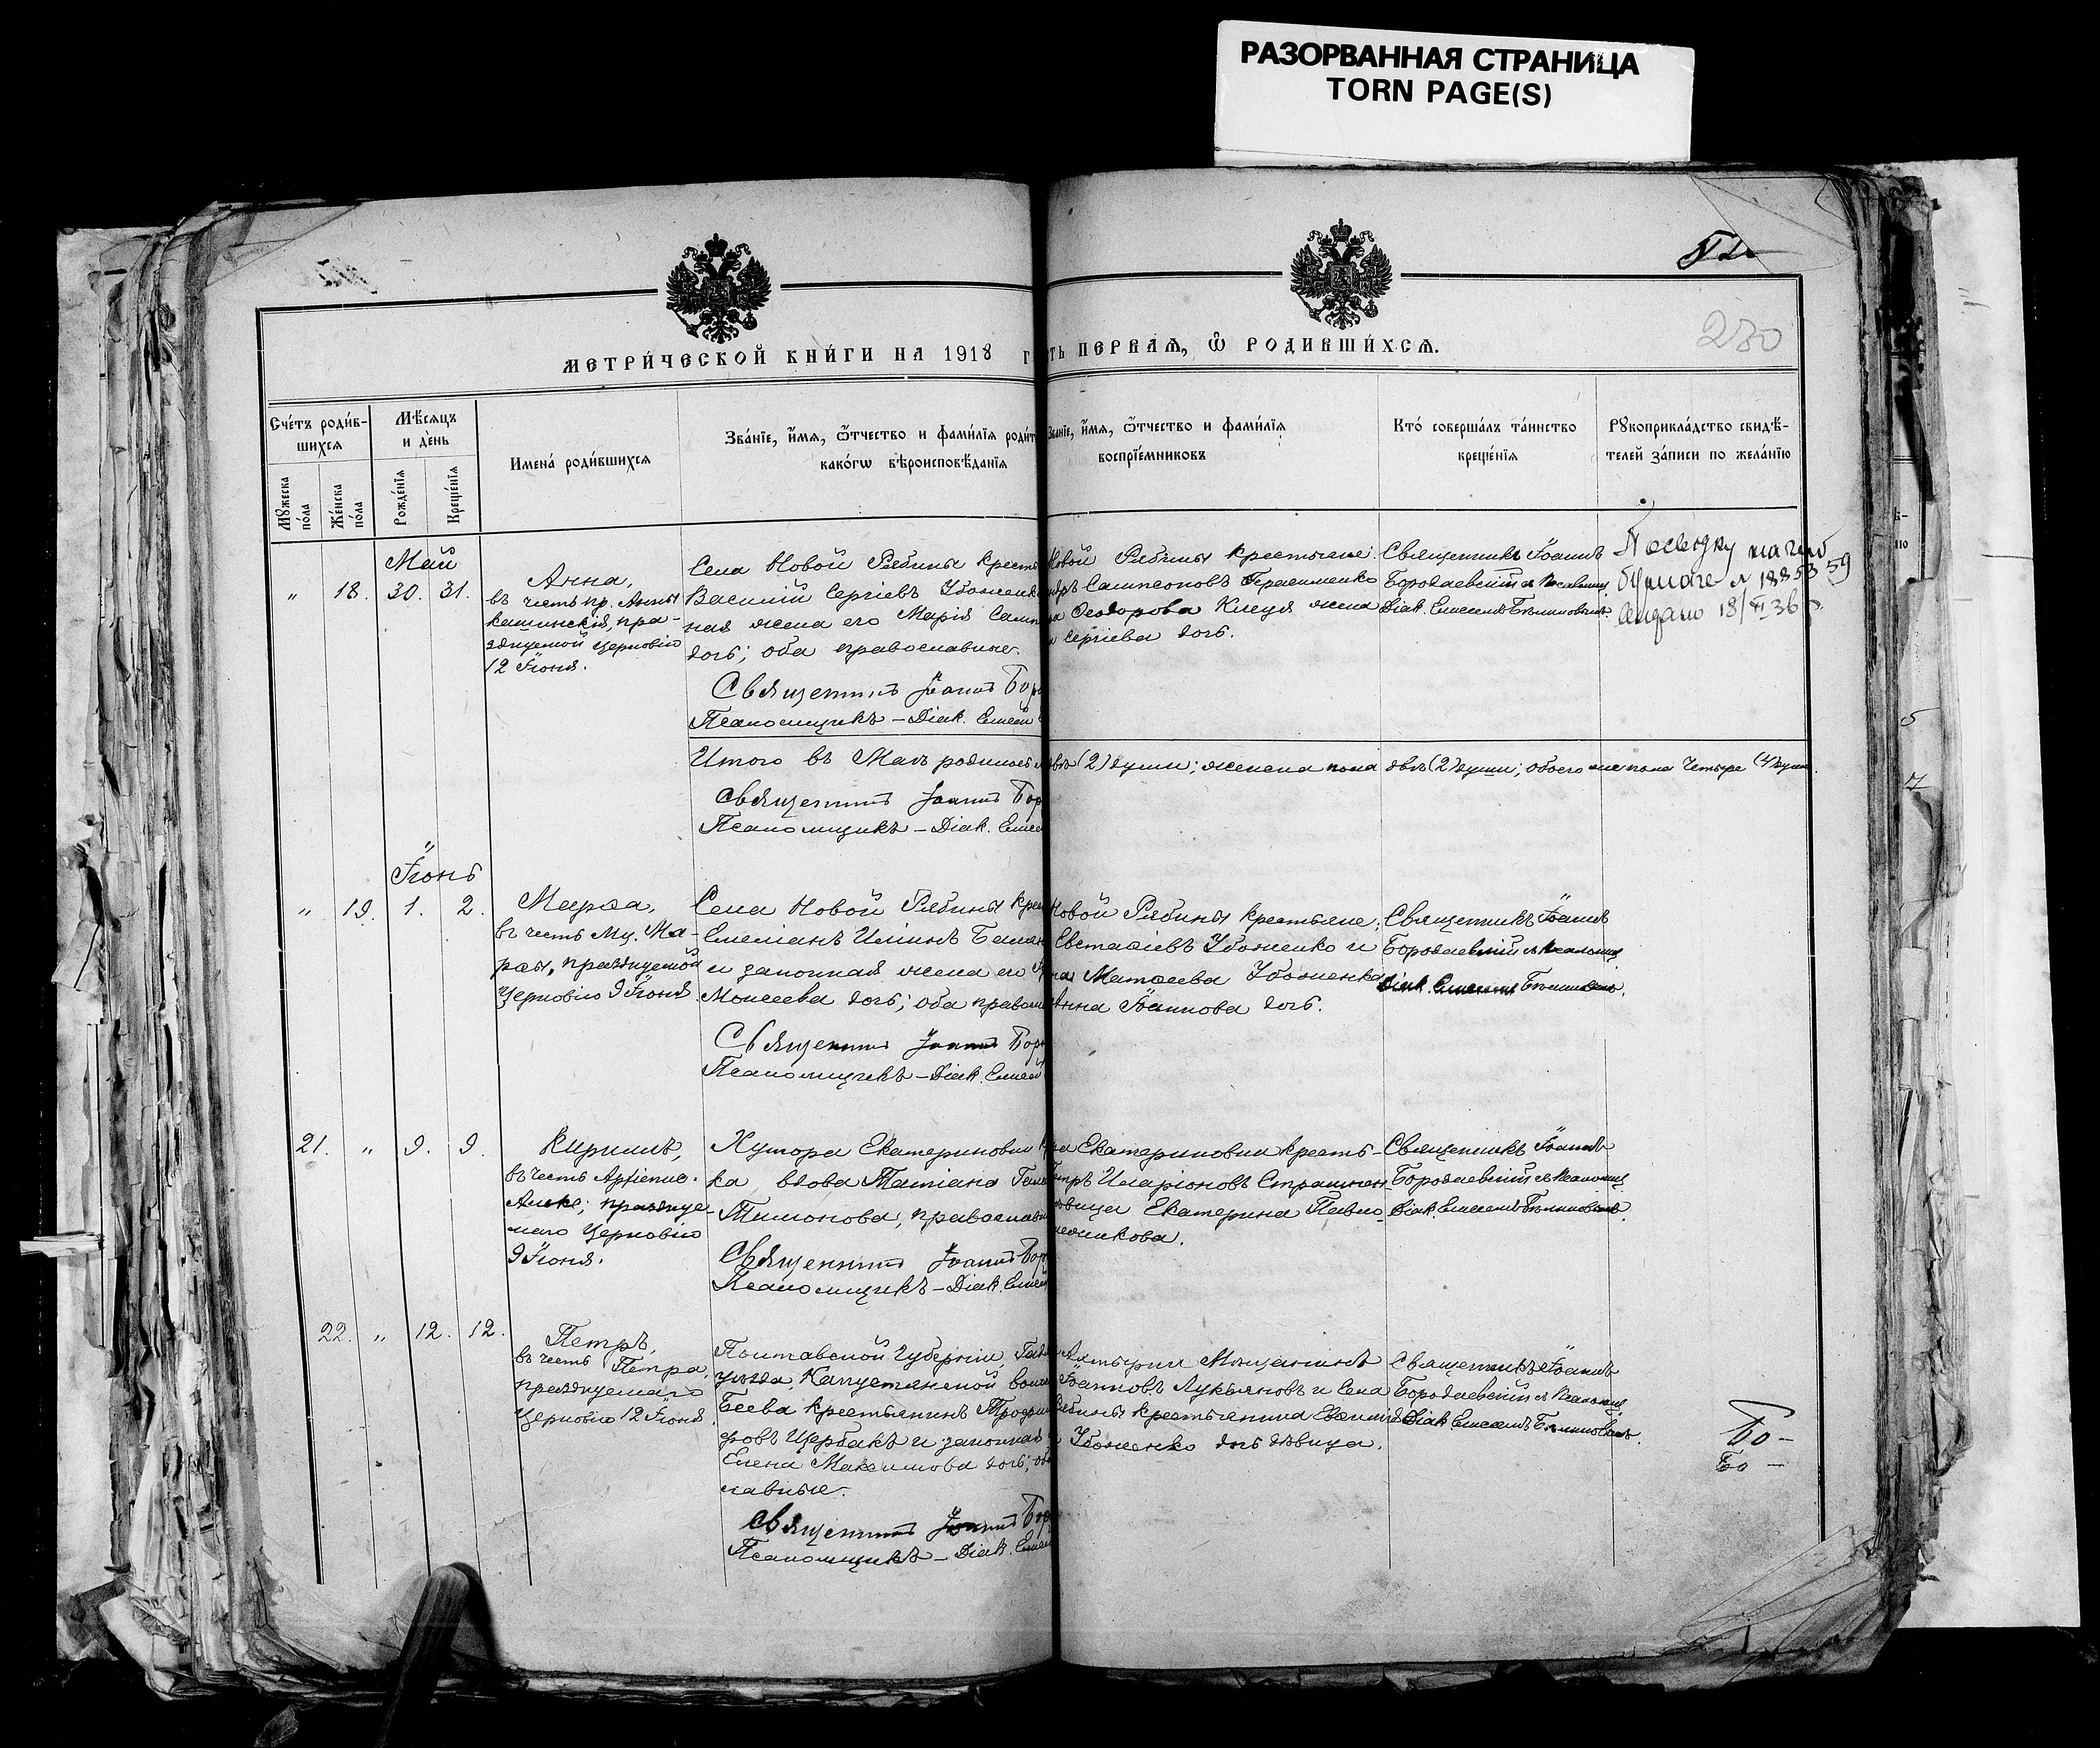 РАЗОРВАННАЯ СТРАНИЦА
TORN PAGE(S)
280
МЕТРИ́ЧЕСКОЙ КНИ́ГИ НА 1918 Г
ТЬ ПЕРВАѦ, Ѡ РОДИВШИ́ХСѦ.
Сче́тъ роди́в-
шихся
Мѣ́сяцъ
и де́нь
Имена́ роди́вшихся
Зва́нїе, и҆́мя, ѻ҆́тчество и фами́лїя роди́т
како́гѡ вѣроисповѣ́данїя
Зва́нїе, и҆́мя, ѻ҆́тчество и фами́лїя
воспрїе́мниковъ
Кто́ соверша́лъ та́инство
креще́нїя
Рꙋкоприкла́дство свидѣ́-
телей за́писи по жела́нїю
Мꙋ́жеска по́ла
Же́нска по́ла
Рожде́нїя
Креще́нїя
Май
" 18. 30. 31.
Анна,
въ честь пр. Анны
кашинскія, пра-
зднуемой церковію
12 Іюня.
Села Новой Рябины крестья
Василій Сергіевъ Убоженко
ная жена его Марія Самп
дочь; оба православные.
Священникъ Іоаннъ Бор
Псаломщикъ – Діак. Елисей
Новой Рябины крестьяне:
дръ Сампсоновъ Герасименко
на Ѳеодорова Клеця жена
Сергіева дочь.
Священникъ Іоаннъ
Бородаевскій съ Псаломщ.
Діак. Елисеемъ
бумаге № 188539
Видано 18/VI 36
Итого въ Маѣ родилось
двѣ (2) души; женска пола двѣ (2) души; обоего же пола четыре (4) души.
Священникъ Іоаннъ Бор
Псаломщикъ – Діак. Елисей
Іюнь
" 19. 1. 2.
Марѳа,
въ честь Мц. Ма-
рѳы, празднуемой
Церковію 9 Іюня
Села Новой Рябины крес
Емеліанъ Иліинъ
и законная жена его
Моисеева дочь; оба правос
Священникъ Іоаннъ Бор
Псаломщикъ – Діак. Елисей
Новой Рябины крестьяне:
Евстаѳіевъ Убоженко и
Матѳеева Убоженка
Анна Іоаннова дочь.
Священникъ Іоаннъ
Бородаевскій съ Псаломщ
Діак. Елисеемъ
21. " 9. 9.
Кириллъ,
въ честь Архіепис.
Алекс; празднуе-
маго Церковію
9 Іюня.
Хутора Екатериновки
ка вдова Татіана
Тимонова, православн
Священникъ Іоаннъ Бор
Псаломщикъ – Діак. Елисей
ра Екатериновки кресть-
Петръ Иларіоновъ
дѣвица Екатерина Павло-
Священникъ Іоаннъ
Бородаевскій съ Псаломщ
Діак. Елисеемъ
22. " 12. 12.
Петръ,
въ честь Петра,
празднуемаго
Церковію 12 Іюня
Полтавской Губерніи, Гадя
уѣзда, Капустянской воло
Беева крестьянинъ Трофим
ровъ Щербакъ и законная
Елена Максимова дочь; об
славные.
Священникъ Іоаннъ Бор
Псаломщикъ – Діак. Елисей
Ахтырки Мѣщанинъ
Іоанновъ Лукьяновъ и Села
Рябины крестьянина
Убоженко дочь дѣвица.
Священникъ Іоаннъ
Бородаевскій съ Псаломщ
Діак. Елисеемъ
Бо –
Бо –